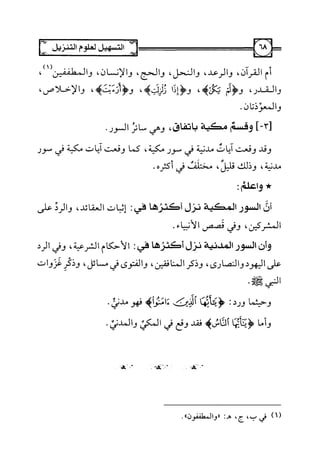 ٦٨
التسهيل لعلوم التنزيل
أم القرآن، والرعد، والنحل، والحج، والإنسان، والمطففين(١)،
والقدر، و﴿لَمْ يَكُنْ﴾، و﴿إِذَا زُلْزِلَتِ﴾، و﴿أَرَءَيْتَ﴾، والإخلاص،
والمعوِّذتان.
[٣-] وقسمٌ مكية باتفاق، وهي سائرُ السور.
وقد وقعت آياتٌ مدنية في سور مكية، كما وقعت آيات مكية في سور
مدنية، وذلك قليلٌ، مختلَفٌ في أكثره.
* واعلم:
أنَّ السور المكية نزل أكثرها في: إثبات العقائد، والردِّ على
المشركين، وفي قَصص الأنبياء.
وأن السور المدنية نزل أكثرها في: الأحكام الشرعية، وفي الرد
على اليهود والنصارى، وذكر المنافقين، والفتوى في مسائل، وذكْرِ غَزَوات
النبي ﷺ.
وحيثما ورد: ﴿يَٰٓأَيُّهَا الَّذِينَ ءَامَنُوا﴾ فهو مدنيٌّ.
وأما ﴿يَٰٓأَيُّهَا النَّاسُ﴾ فقد وقع في المكيِّ والمدنيِّ.
(١) في ب، ج، هـ: «والمطففون».